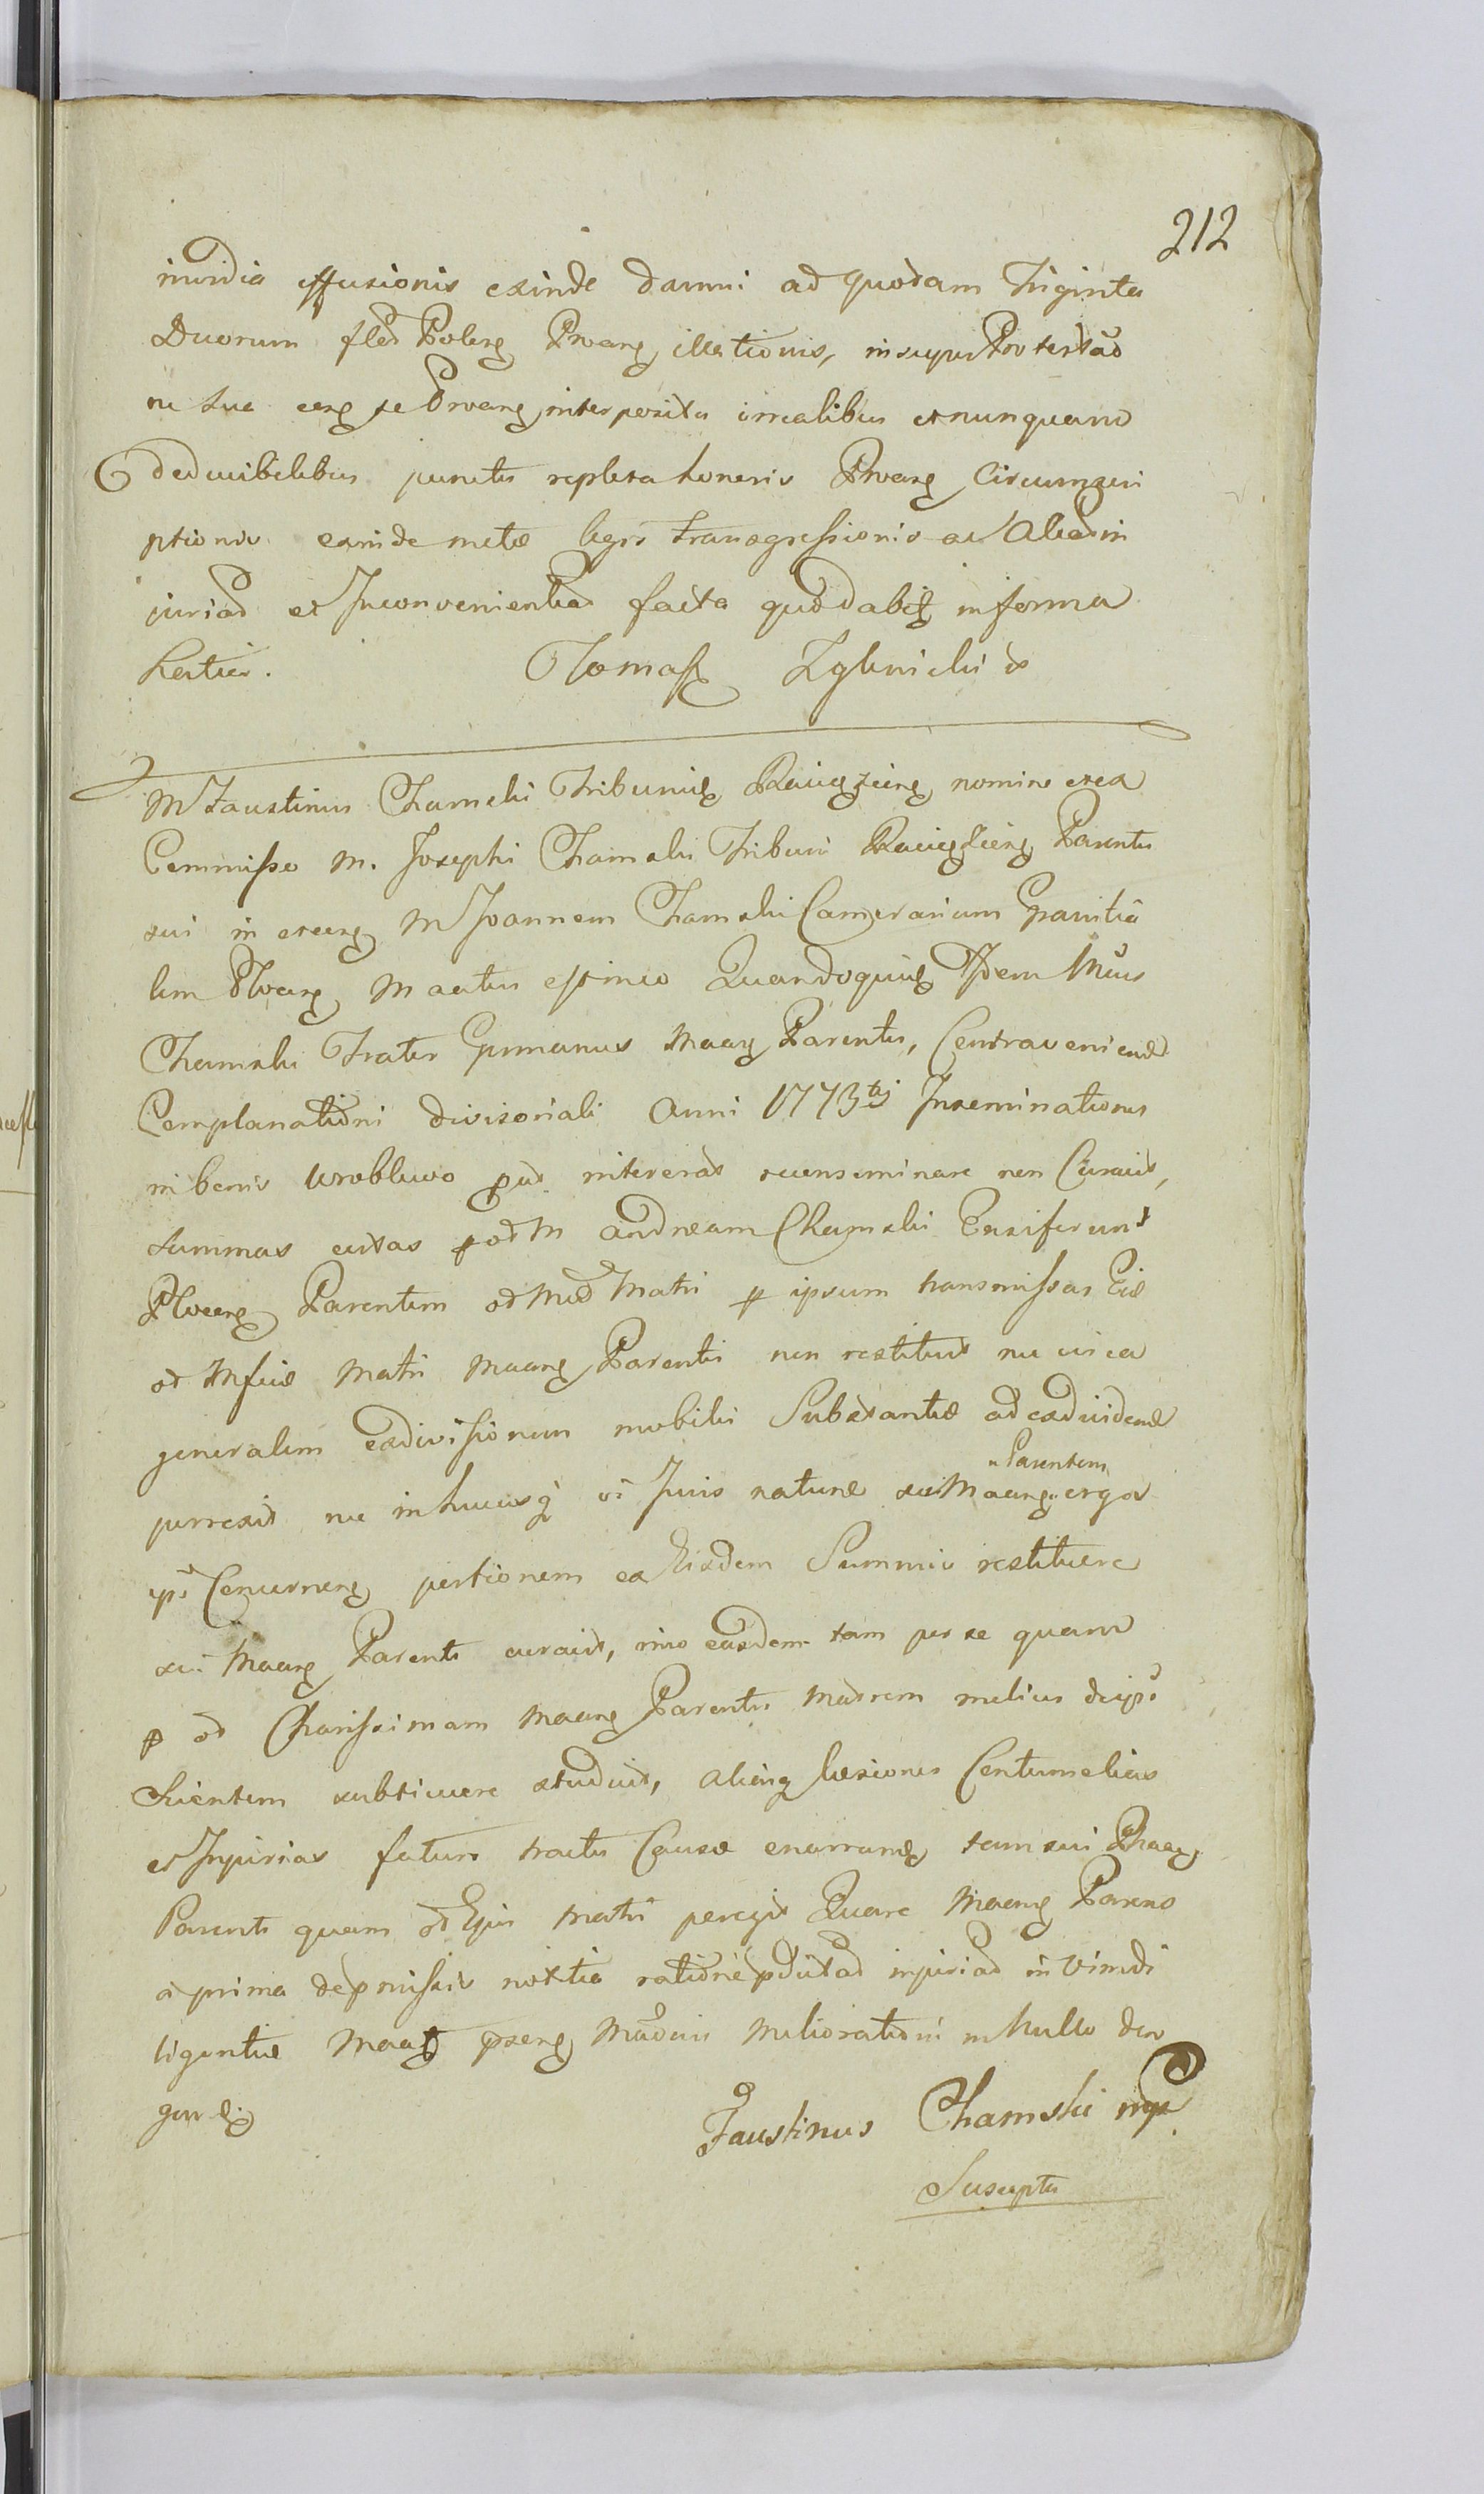 212
invidia effusionis exinde damni ad quodam Triginta
Duorum flo Polorg Proang illationis, insuper Protestao
ne sua eorg se Proang interposita irrealibus et nunquam
deducibilibus punctis repleta honeris Proang Circumscri
ptionis exinde metae legis transgressionis ac Aliad in
juriad et Inconvenientiad facta quod dabit in forma
latiori. Tomasz Zglinicki
M Faustinus Chamski Tribunid Raciążieng nomine et ex
Commisso M. Josephi Chamski Tribuni Raciążieng Parentis
sui in et eorg M Joannem Chamski Camerarium Granitia
lem Ploceng M actus Quandoquid Idem Mcus
Chamski Frater Germanus Maang Parentis, Contraveniend
Complanationi divisoriali Anni 1773tij Inseminationis
in bonis Wroblewo put intererat recenseminare non Curavit,
Summas certas p od M Andream Chamski Ensiferum
Ploceng Parentem od Mcd Matri p ipsum transmissas
od Matri Maang Parentis non restituit nec circa
generalem exdivisionem mobilis Substantiae ad exdividend
perrexit nec in hucusq vi Juris naturae sui Maang Parentem erga
ips Concerneng portionem ex Eisdem Summis restituere
sui Maang Parenti curavit, imo easdem tam per se quam
p od Charissimam Maang Parentis Matrem melius
subticuere studuit, aliasq laesiones Contumelias
et Injurias futuro tractu Causae enarrand tam sui Maang
Parenti quam od Ejus Matri peregit Quare Maang Parens
a prima depmissis notitia ratione pductad injuriad in Vim di
ligentiae Maag pseng Maoeis meliorationi in nullo dero
gand
Faustinus Chamski mp
Suscepta